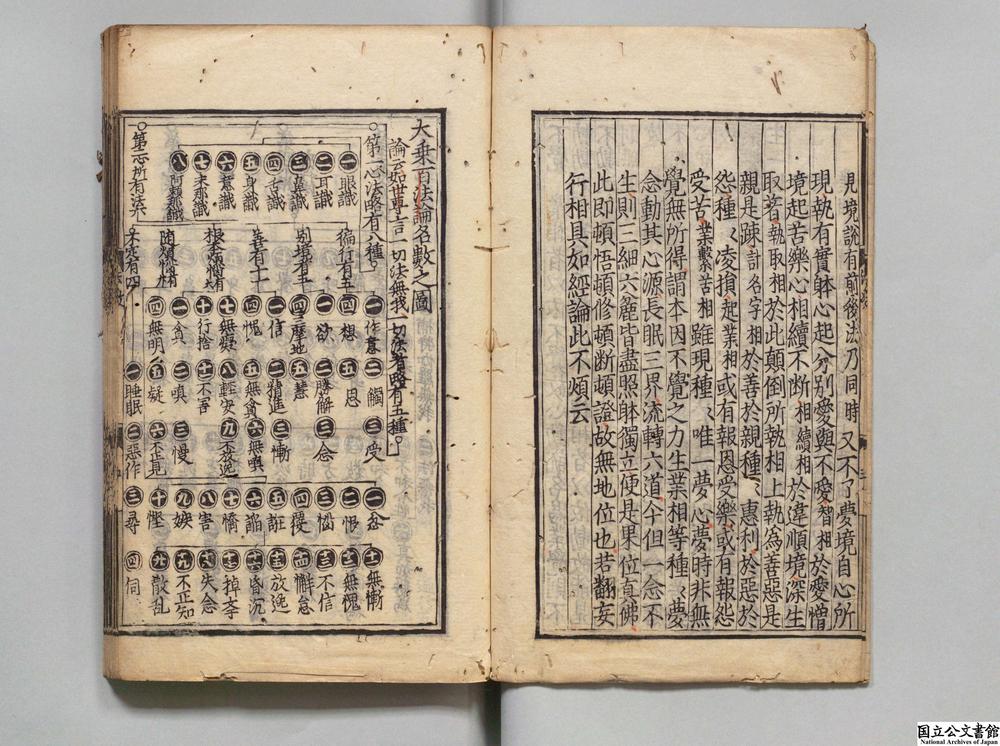 見境説有前後法乃同時又不了夢境自心所
現執有實躰心起分別愛與不愛智相於愛憎
境起苦樂心相續不断相續相於違順境深生
取著執取相於此顛倒所執相上執為善惡是
親是踈計名字相於善於親種〻惠利於惡於
怨種〻凌損起業相或有報恩受樂或有報怨
受苦業繫苦相雖現種〻唯一夢心夢時非無
覺無所得謂本因不覺之力生業相等種〻夢
念動其心源長眠三界流轉六道今但一念不
生則三細六麁皆盡照躰獨立便是果位真佛
此即頓悟頓修頓断頓證故無地位也若翻妄
行相具如經論此不煩云
大乗百法論名數之圖
論云如世尊言一切法無我一切法者略有五種
○第一心法略有八種
一眼識
二耳識
三鼻識
四舌識
五身識
六意識
七末那識
八阿頼耶識
○第二心所有法六
徧行有五
別境有五
善有十一
根本煩惱有六
隨煩惱有
不定有四
一作意 二觸 三受
四想 五思
一欲 二勝解 三念
四三摩地 五慧
一信 二精進 三慚
四愧 五無貪 六無嗔
七無癡 八輕安 九不放逸
十行捨 十一不害
一貪 二嗔 三慢
四無明 五疑 六不正見
一忿 十一無慚
二恨 十二無愧
三惱 十三不信
四覆 十四懈怠
五誑 十五放逸
六諂 十六昏沉
七憍 十七掉挙
八害 十八失念
九嫉 十九不正知
十慳 廿散乱
一睡眠 二惡作 三尋 四伺
国立公文書館
National Archives of Japan